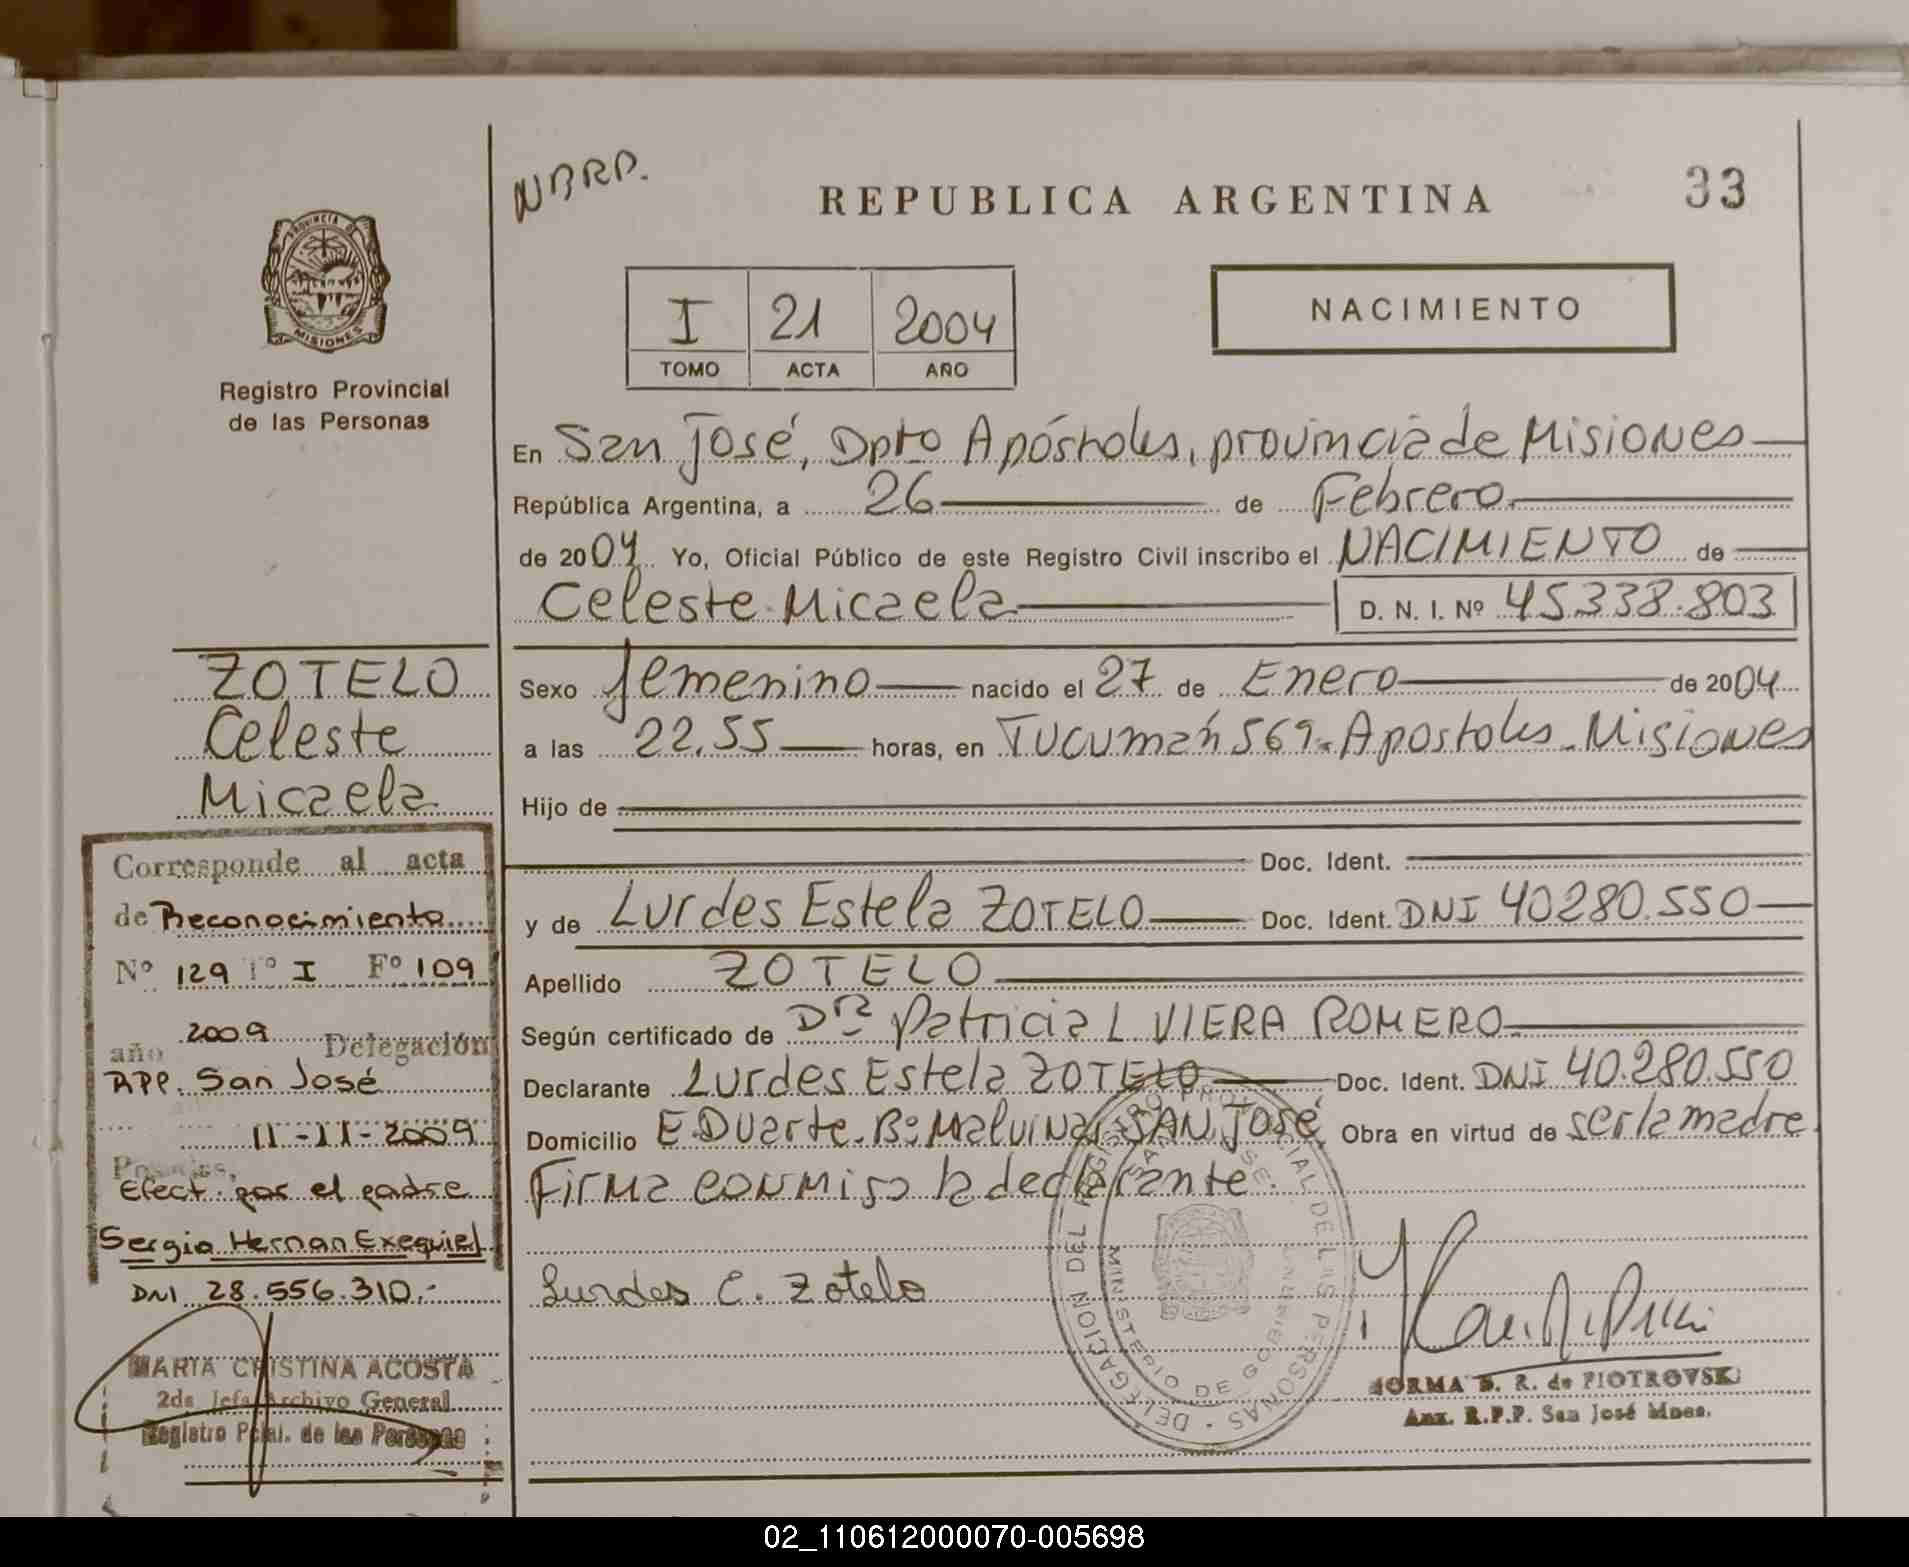 NBRP.
REPUBLICA ARGENTINA
33
PROVINCIA DE
MISIONES
Registro Provincial
de las Personas
I 21 2004
TOMO ACTA AÑO
NACIMIENTO
En San José, Dpto Apóstoles, provincia de Misiones
República Argentina, a 26 de Febrero
de 2004 Yo, Oficial Público de este Registro Civil inscribo el NACIMIENTO de
Celeste Micaela D. N. I. Nº 45.338.803
Sexo femenino nacido el 27 de Enero de 2004
a las 22.55 horas, en Tucumán 569 - Apostoles - Misiones
Hijo de
Doc. Ident.
y de Lurdes Estela ZOTELO Doc. Ident. DNI 40280.550
Apellido ZOTELO
Según certificado de Dra Patricia L VIERA ROMERO
Declarante Lurdes Estela ZOTELO Doc. Ident. DNI 40.280.550
Domicilio E. Duarte - Bº Malvinas SAN José Obra en virtud de ser la madre
Firma conmigo la declarante.
Lurdes E. Zotelo
DELEGACION DEL REGISTRO PROVINCIAL DE LAS PERSONAS
SAN JOSE
MINISTERIO DE GOBIERNO
NORMA B. R. de PIOTROVSKI
Aux. R.P.P. San José Mnes.
ZOTELO
Celeste
Micaela
Corresponde al acta
de Reconocimiento
Nº 129 Tº I Fº 109
año 2009 Delegación
RPP. San José
11-11-2009
Posadas,
Efect. por el padre
Sergio Hernan Exequiel
DNI 28.556.310.-
MARIA CRISTINA ACOSTA
2da Jefa Archivo General
Registro Pcial. de las Personas
02_110612000070-005698